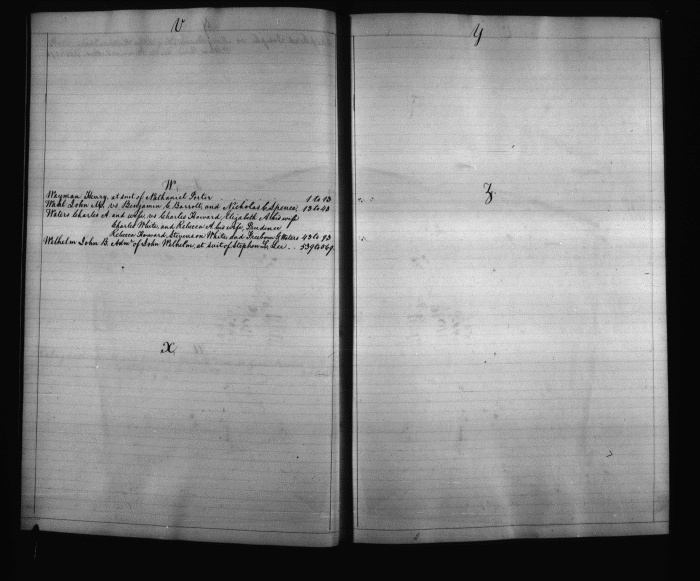 V
W
Wayman Henry, at suit of Nathaniel Porter 1 to 13
John M. vs Benjamin C. Barroll, and Nicholas C Spence, 13 to 43
Waters Charles A and wife, vs Charles Howard, Elizabeth A his wife
Charles White, and Rebecca A his wife, Prudence
Rebecca Howard, Stevenson White, and Freeborn G Waters 43 to 93
Wilhelm John B. Admr of John Wilhelm, at suit of Stephen L. Lee .. 539 to 569
X
Y
Z